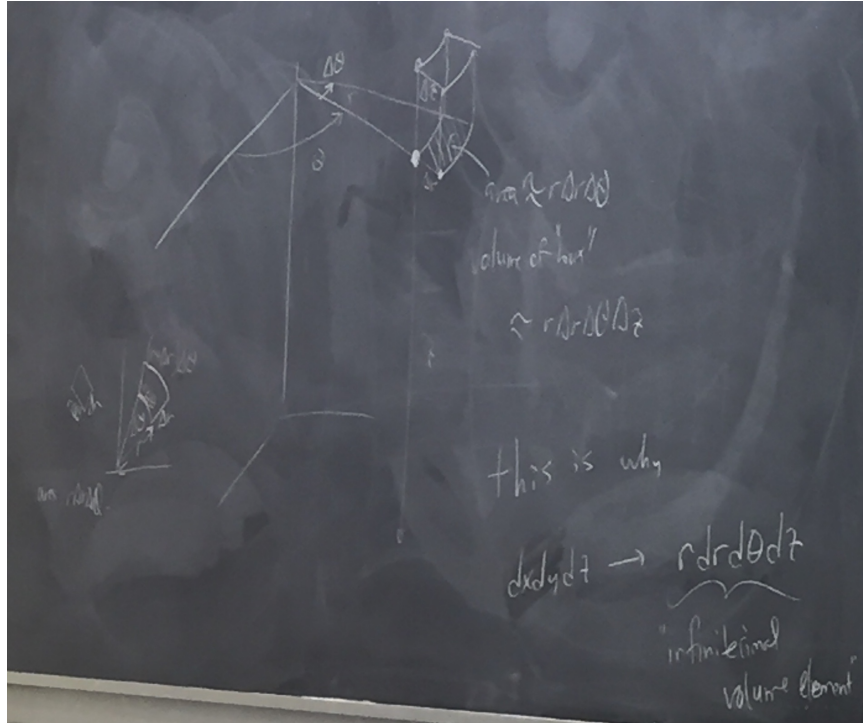 Δθ
r
θ
Δz
area ≈ rΔrΔθ
volume of "box"
≈ rΔrΔθΔz
z
Δr
area rΔrΔθ
this is why
dxdydz → rdrdθdz
"infinitesimal
volume element"